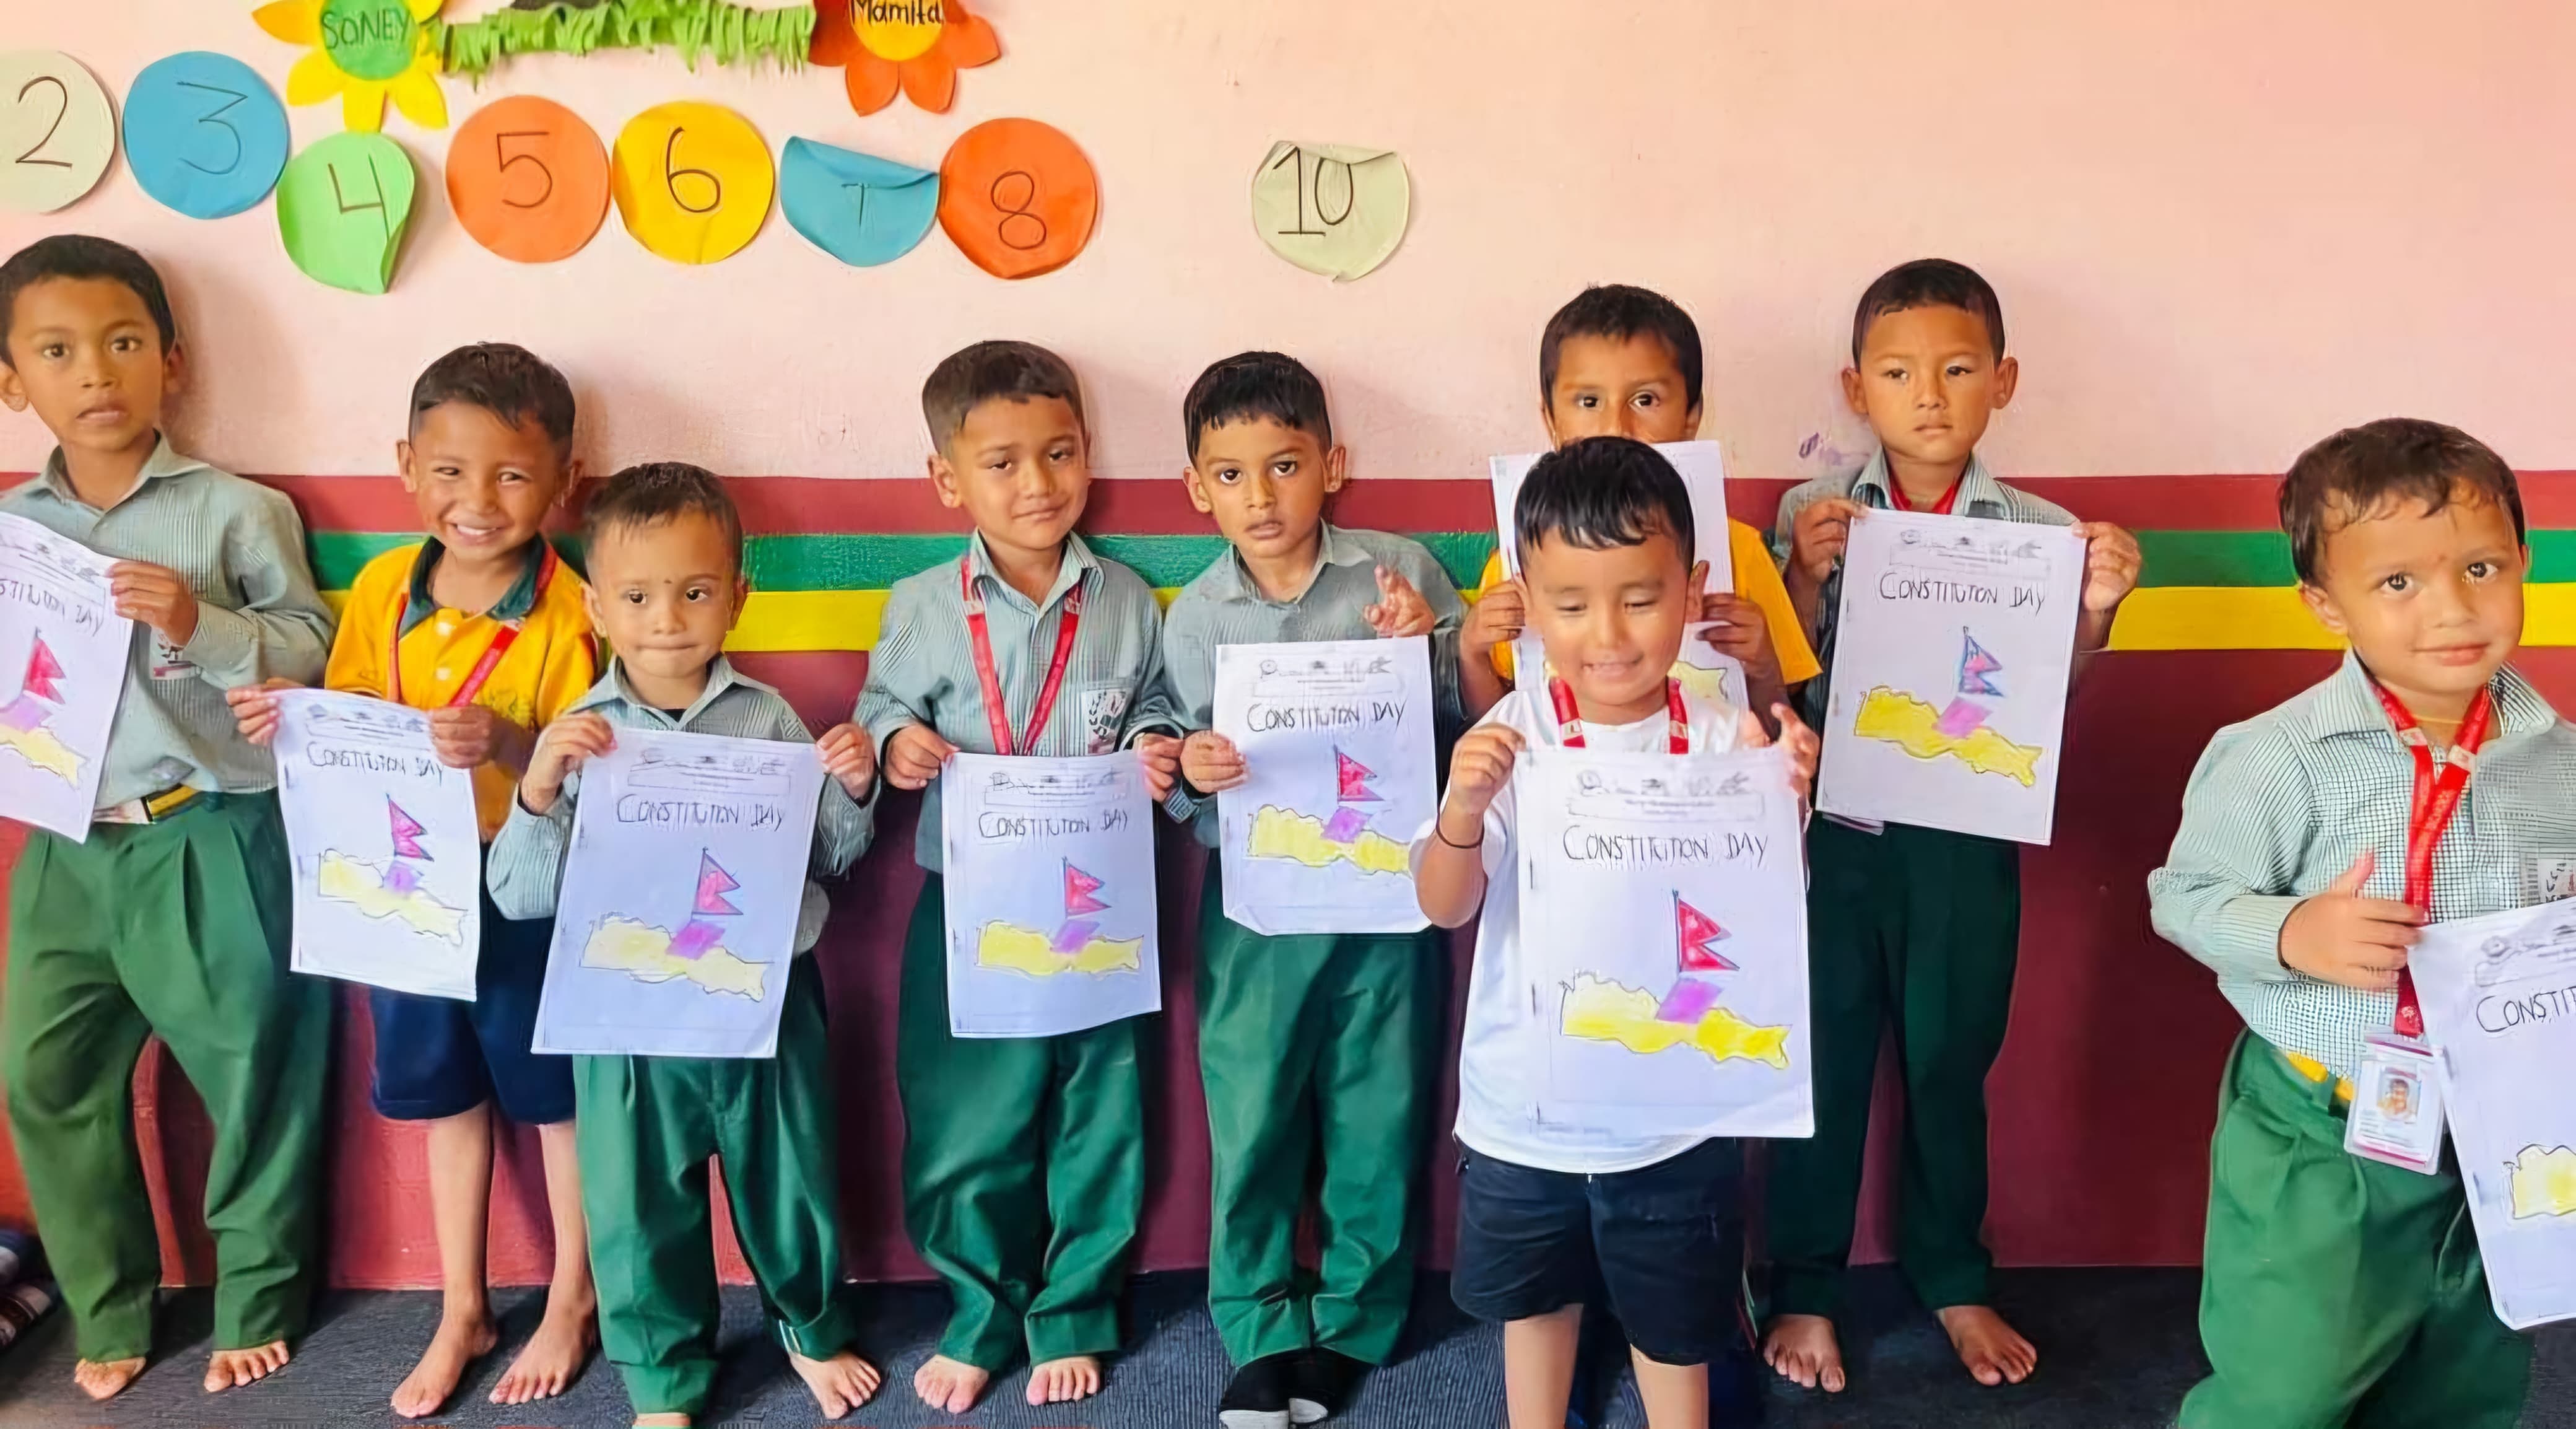 SONEY
Mamita
2
3
4
5
6
7
8
10
CONSTITUTION DAY
CONSTITUTION DAY
CONSTITUTION DAY
CONSTITUTION DAY
CONSTITUTION DAY
CONSTITUTION DAY
CONSTITUTION DAY
STITUTION DAY
CONSTIT